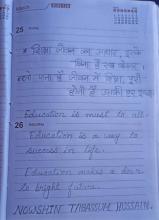 25
* शिक्षा जीवन का आधार, इसके
बिना है सब बेकार।
है जीवन में शिक्षा, इसी
होती है उसकी हर इच्छा
Education is must to all
26
Education is a way to
success in life.
Education makes a door
to bright future.
NOWSHIN THBASSUM HUSSAIN.